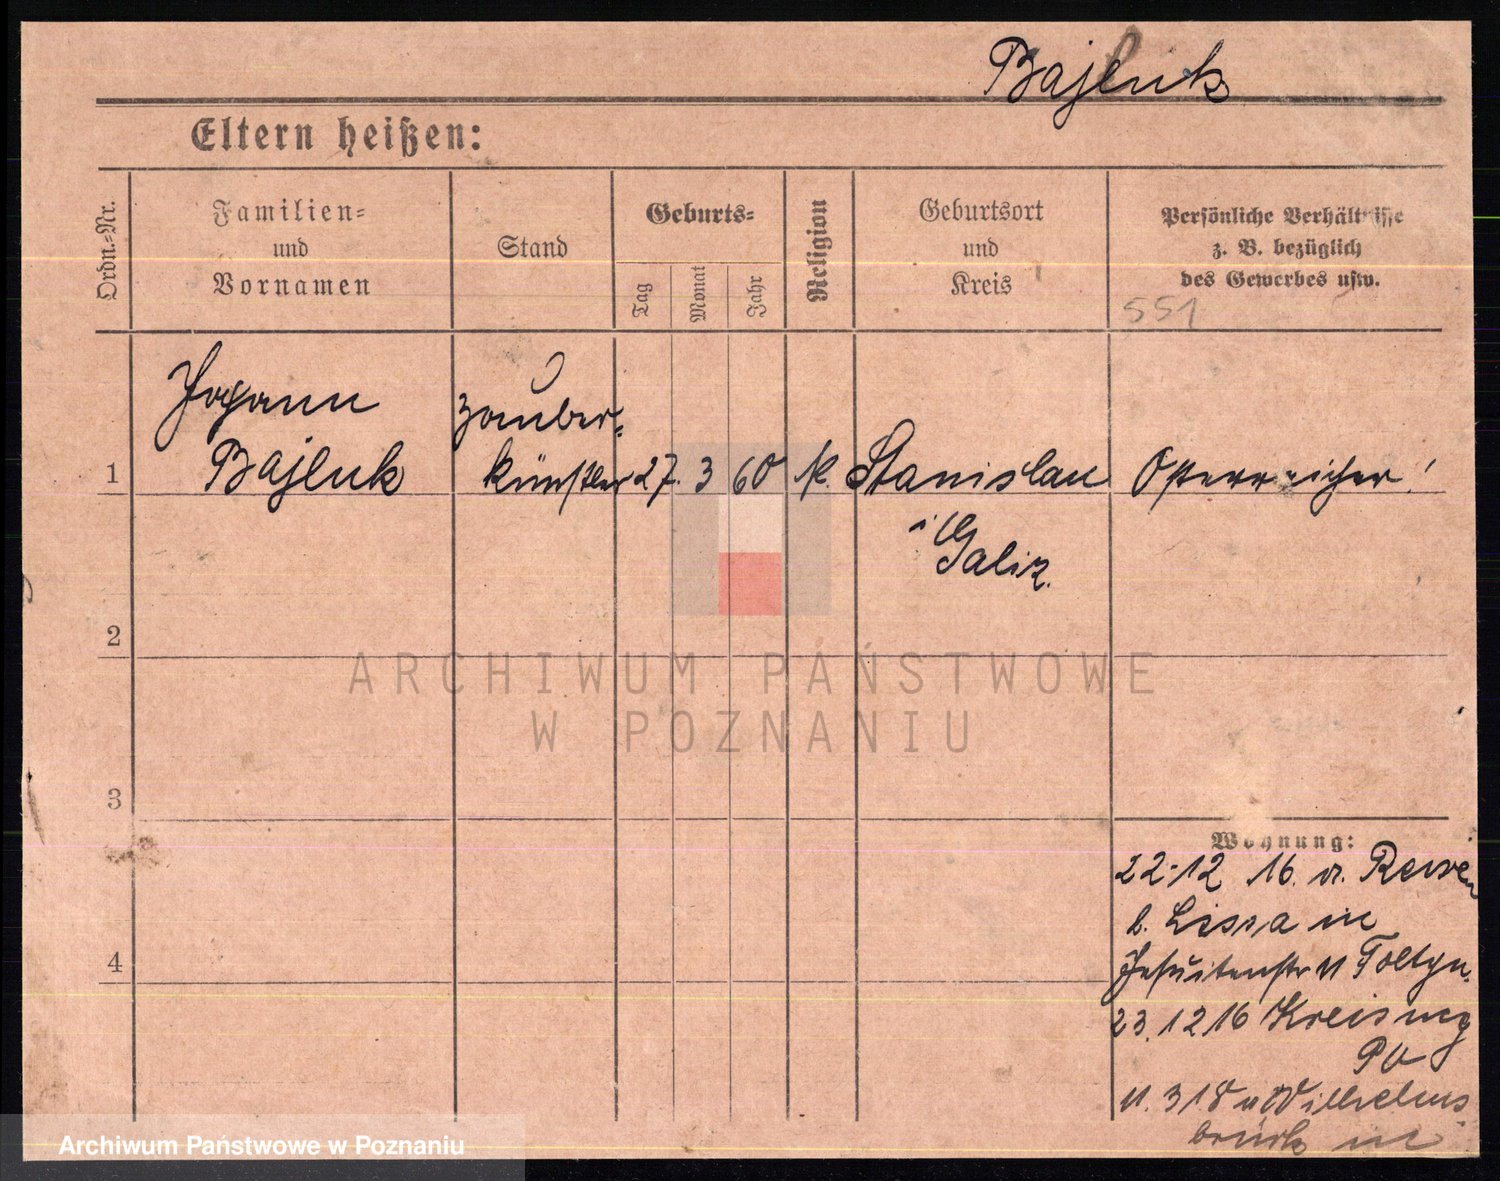 Bajluk
Eltern heißen:
Ordn.-Nr.
Familien-
und
Vornamen
Stand
Geburts-
Tag
Monat
Jahr
Religion
Geburtsort
und
Kreis
Persönliche Verhältnisse
z. B. bezüglich
des Gewerbes usw.
551
1
Johann
Bajluk
Zauber-
künstler
27. 3 60
k.
Stanislau
i Galiz.
Österreicher!
2
3
4
Wohnung:
22-12 16. v.
b. Lissa
Jesuitenstr 11
23.12 16
11. 3 18 n Wilhelms
brück
ARCHIWUM PAŃSTWOWE
W POZNANIU
Archiwum Państwowe w Poznaniu